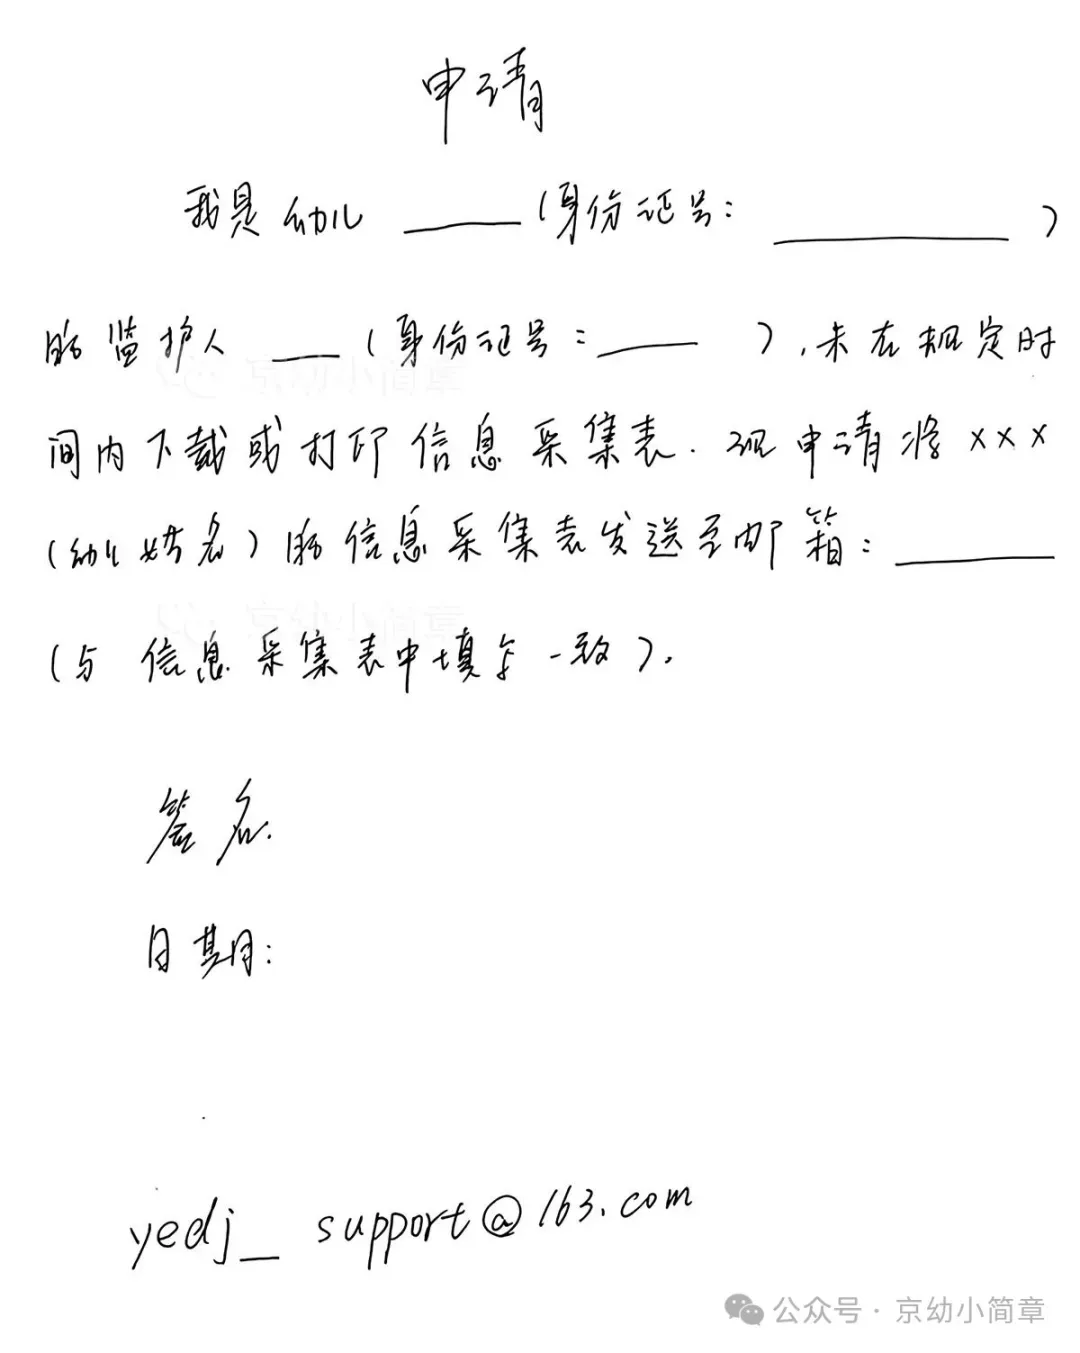 申请
我是幼儿 ______(身份证号: ____________ )
的监护人 ____ (身份证号:______ ),未在规定时
间内下载或打印信息采集表.现申请将×××
(幼儿姓名)的信息采集表发送至邮箱:________
(与信息采集表中填写一致).
签名.
日期:
yedj_support@163.com
公众号·京幼小简章
京幼小简章
京幼小简章